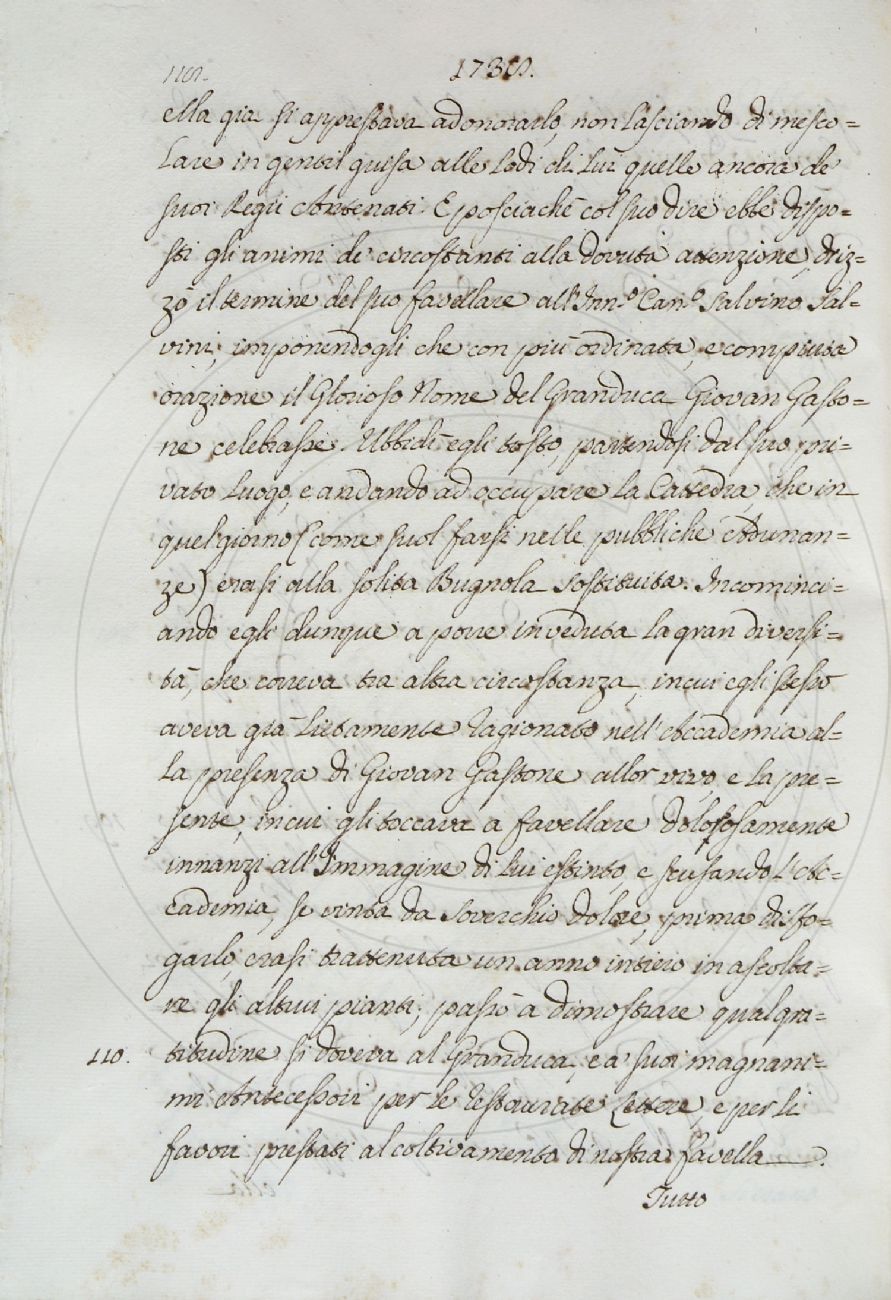 1738.
ella già si apprestava ad onorarlo, non lasciando di mesco=
lare in gentil guisa alle Lodi di Lui quelle ancora de'
suoi Regii Antenati. E posciachè col suo dire ebbe dispo=
sti gli animi de' circostanti alla dovuta attenzione, driz=
zò il termine del suo favellare all'Inn.º Can.º Salvino Sal=
vini, imponendogli che con più ordinata, e compiuta
orazione il Glorioso Nome del Granduca Giovan Gasto=
ne celebrasse. Ubbidì egli tosto, partendosi dal suo pri=
vato Luogo, e andando ad occupare la Cattedra, che in
quel giorno (come suol farsi nelle pubbliche Adunan=
ze) erasi alla solita Bugnola sostituita. Incominci=
ando egli dunque a porre in veduta la gran diversi=
tà, che correva tra altra circostanza, in cui egli stesso
aveva già Lietamente ragionato nell'Accademia al=
la presenza di Giovan Gastone allor vivo, e la pre=
sente, in cui gli toccava a favellare dolorosamente
innanzi all'Immagine di Lui estinto, e scusando l'Ac=
cademia, se vinta da soverchio dolore, prima di sfo=
garlo, erasi trattenuta un anno intiero in ascolta=
re gli altrui pianti; passò a dimostrare qual gra=
110. titudine si doveva al Granduca, e a' suoi magnani=
mi Antecessori per le restaurate Lettere, e per li
favori prestati al coltivamento di nostra favella.
Tutto